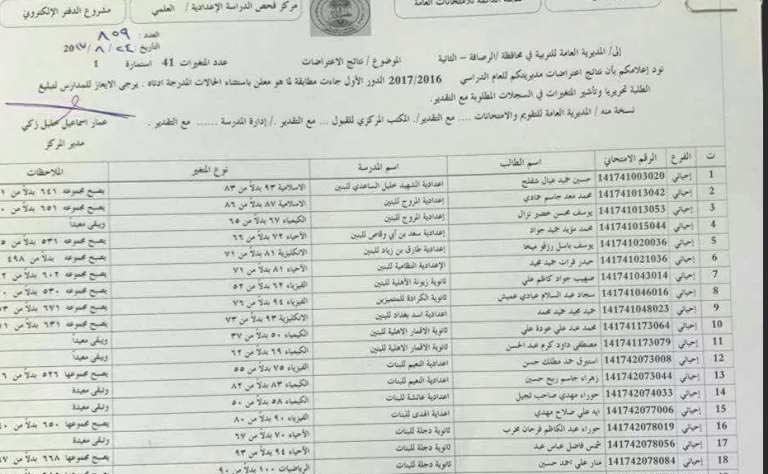 مركز فحص الدراسة الإعدادية / العلمي
مشروع الدفتر الإلكتروني
العدد: ٨٥٩
التاريخ: ٢٠١٧/٨/٢٤
إلى/ المديرية العامة للتربية في محافظة /الرصافة - الثانية
الموضوع / نتائج الاعتراضات
عدد المتغيرات 41 استمارة 1
نود إعلامكم بأن نتائج اعتراضات مديريتكم للعام الدراسي 2017/2016 الدور الأول جاءت مطابقة لما هو معلن باستثناء الحالات المدرجة ادناه . يرجى الايعاز للمدارس لتبليغ
الطلبة تحريريا وتأشير المتغيرات في السجلات المطلوبة مع التقدير.
نسخة منه / المديرية العامة للتقويم والامتحانات .... مع التقدير/. المكتب المركزي للقبول ... مع التقدير ./ إدارة المدرسة ...... مع التقدير .
عمار اسماعيل خليل زكي
مدير المركز
ت الفرع الرقم الامتحاني اسم الطالب اسم المدرسة نوع المتغير الملاحظات
1 إحيائي 141741003020 حسين حميد عيال شفلح اعدادية الشهيد خليل الساعدي للبنين الاسلامية ٩٣ بدلاً من ٨٣ يصبح مجموعه ٦٤١ بدلاً من
2 إحيائي 141741013042 محمد معد جاسم حمادي اعدادية المروج للبنين الاسلامية ٨٧ بدلاً من ٨٦ يصبح مجموعه ٦٥١ بدلاً من
3 إحيائي 141741013053 يوسف محسن خضير نزال اعدادية المروج للبنين الكيمياء ٦٧ بدلاً من ٦٥ ويبقى معيداً
4 إحيائي 141741015044 محمد مؤيد حميد جواد اعدادية سعد بن أبي وقاص للبنين الأحياء ٧٢ بدلاً من ٦٦ يصبح مجموعه ٥٣١ بدلاً من
5 إحيائي 141741020036 يوسف باسل رزقو ميخا اعدادية طارق بن زياد للبنين الانكليزية ٨١ بدلاً من ٧١ يصبح مجموعه بدلاً من ٤٩٨
6 إحيائي 141741021036 حيدر فرات حميد مجيد الإعدادية النظامية للبنين الأحياء ٨١ بدلاً من ٧١ يصبح مجموعه ٦٠٢ بدلاً من
7 إحيائي 141741043014 صهيب جواد كاظم علي ثانوية زيونة الأهلية للبنين الفيزياء ٦٢ بدلاً من ٥٢ يصبح مجموعه ٥٣٠ بدلاً من
8 إحيائي 141741046016 سجاد عبد السلام عبادي عميش ثانوية الكرادة للمتميزين الفيزياء ٩٤ بدلاً من ٧٦ يصبح مجموعه ٦٧١ بدلاً من
9 إحيائي 141741048023 حميد مجيد حميد محمد اعدادية اسد بغداد للبنين الانكليزية ٩٣ بدلاً من ٧٣ يصبح مجموعه ٦٣١ بدلاً من
10 إحيائي 141741173064 محمد عبد علي عودة علي ثانوية الاقمار الاهلية للبنين الكيمياء ٥٠ بدلاً من ٣٧ ويبقى معيداً
11 إحيائي 141741173079 مصطفى داود كرم عبد الحسن ثانوية الاقمار الاهلية للبنين الكيمياء ٦٩ بدلاً من ٦٢ ويبقى معيداً
12 إحيائي 142742073008 استبرق حمد مطلك حسن اعدادية النعيم للبنات الفيزياء ٧٥ بدلاً من ٥٥ يصبح مجموعها ٥٢٦ بدلاً من
13 إحيائي 142742073044 زهراء جاسم ربح حسين اعدادية النعيم للبنات الكيمياء ٨٣ بدلاً من ٨٢ وتبقى معيدة
14 إحيائي 142742074033 حوراء مهدي صاحب ثجيل اعدادية عائشة للبنات الكيمياء ٥٨ بدلاً من ٥٠ وتبقى معيدة
15 إحيائي 142742077006 ايه علي صلاح مهدي اعداية الهدى للبنات الفيزياء ٩٠ بدلاً من ٨٠ يصبح مجموعها ٦٥٠ بدلاً من
16 إحيائي 142742078019 حوراء عبد الكاظم فرحان محرب ثانوية دجلة للبنات الأحياء ٧٠ بدلاً من ٦٧ وتبقى معيدة
17 إحيائي 142742078056 شمس فاضل عباس عبد ثانوية دجلة للبنات الأحياء ٩٤ بدلاً من ٩٣ يصبح مجموعها ٦٦٨ بدلاً من
18 إحيائي 142742078084 منار علي احمد حسين ثانوية دجلة للبنات الرياضيات ١٠٠ بدلاً من ٩٠